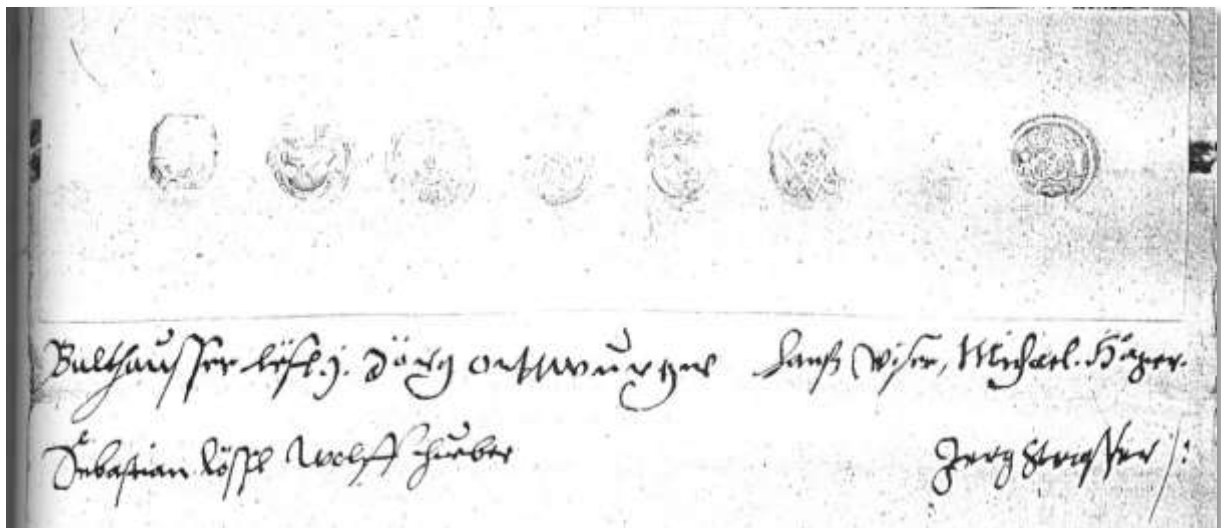 Balthausser löfl. j. Jörg ottwurger Hanß Wiser, Michael. Häger.
Sebastian löffl Wolff Hueber Jerg Strasser /: